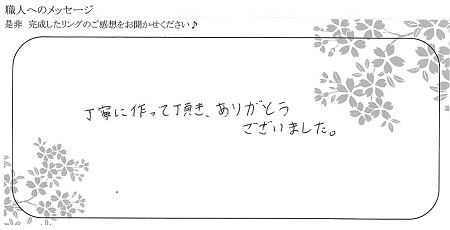 職人へのメッセージ
是非 完成したリングのご感想をお聞かせください♪
丁寧に作って頂き、ありがとう
ございました。